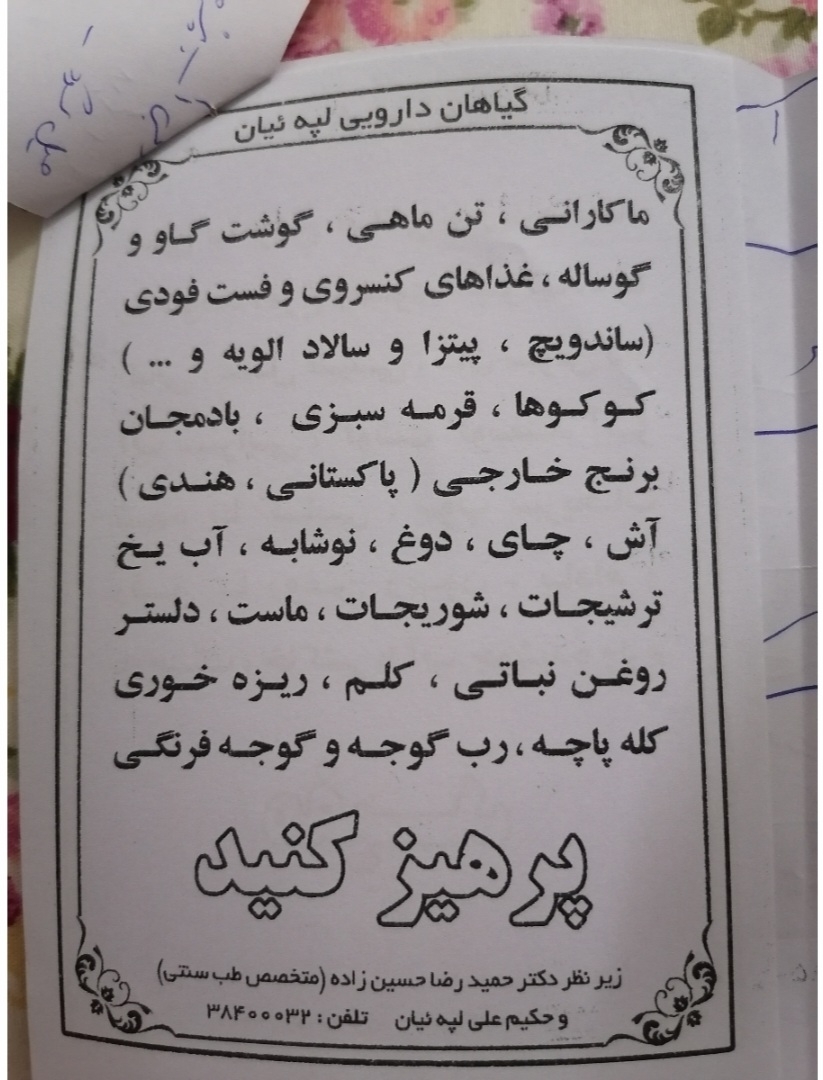 گیاهان دارویی لپه ئیان
ماکارانی ، تن ماهی ، گوشت گاو و
گوساله ، غذاهای کنسروی و فست فودی
(ساندویچ ، پیتزا و سالاد الویه و ... )
کوکوها ، قرمه سبزی ، بادمجان
برنج خارجی ( پاکستانی ، هندی )
آش ، چای ، دوغ ، نوشابه ، آب یخ
ترشیجات ، شوریجات ، ماست ، دلستر
روغن نباتی ، کلم ، ریزه خوری
کله پاچه ، رب گوجه و گوجه فرنگی
پرهیز کنید
زیر نظر دکتر حمید رضا حسین زاده (متخصص طب سنتی)
و حکیم علی لپه ئیان تلفن : ۳۸۴۰۰۰۳۲